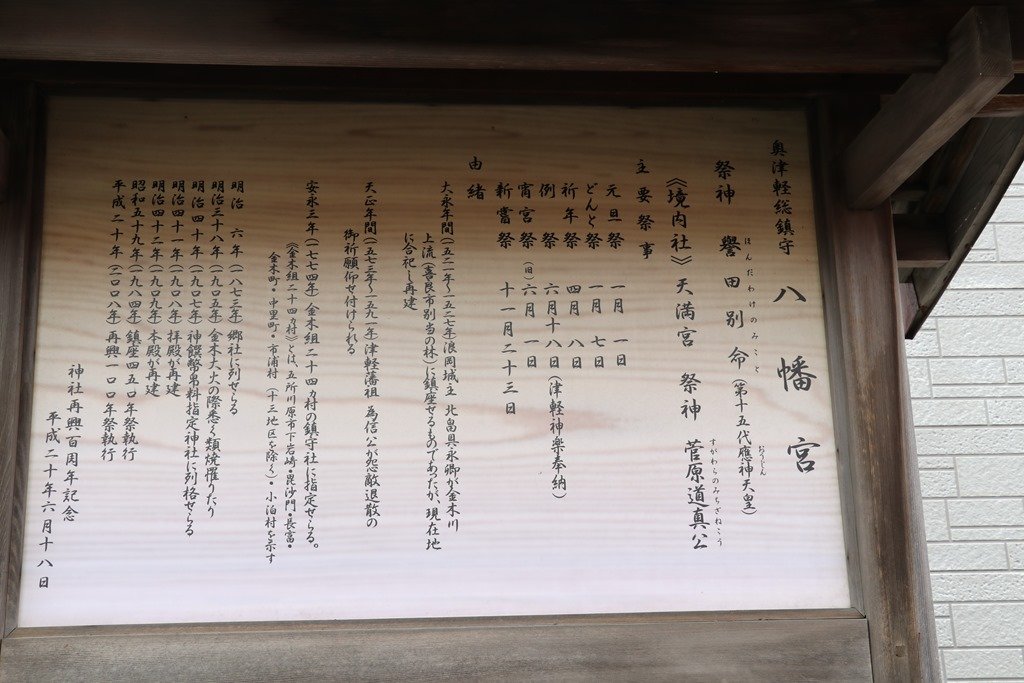 奥津軽総鎮守 八幡宮
祭神 誉田別命(第十五代應神天皇)
ほんだわけのみこと おうじん
《境内社》天満宮 祭神 菅原道真公
すがわらのみちざねこう
主要祭事
元旦祭 一月 一日
どんと祭 一月 七日
祈年祭 四月 八日
例祭 六月十八日(津軽神楽奉納)
宵宮祭 (旧)六月 一日
新嘗祭 十一月二十三日
由緒
大永年間(一五二一年~一五二七年)浪岡城主 北畠具永卿が金木川
上流(喜良市別当の林)に鎮座せるものであったが、現在地
に合祀し再建
天正年間(一五七三年~一五九一年)津軽藩祖 為信公が怨敵退散の
御祈願仰せ付けられる
安永三年(一七七四年)金木組二十四ヵ村の鎮守社に指定せらる。
《金木組二十四ヵ村》とは、五所川原市下岩崎・毘沙門・長富・
金木町・中里町・市浦村(十三地区を除く)・小泊村を示す
明治 六年(一八七三年)郷社に列せらる
明治三十八年(一九〇五年)金木大火の際悉く類焼罹りたり
明治四十年(一九〇七年)神饌幣帛料指定神社に列格せらる
明治四十一年(一九〇八年)拝殿が再建
明治四十二年(一九〇九年)本殿が再建
昭和五十九年(一九八四年)鎮座四五〇年祭執行
平成二十年(二〇〇八年)再興一〇〇年祭執行
神社再興百周年記念
平成二十年六月十八日